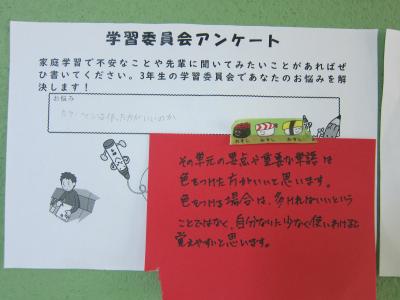 学習委員会アンケート
家庭学習で不安なことや先輩に聞いてみたいことがあればぜ
ひ書いてください。3年生の学習委員会であなたのお悩みを解
決します！
お悩み
方がいいのか
その単元の要点や重要な単語は
色をつけた方がいいと思います。
色をつける場合は、多ければいいという
ことではなく、自分なりに少なく使い分けると
覚えやすいと思います。